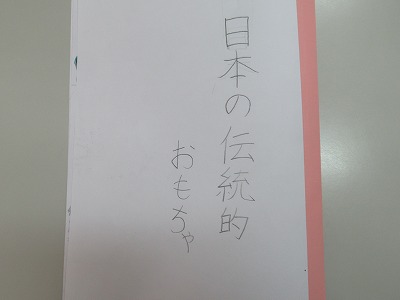 日本の伝統的
おもちゃ